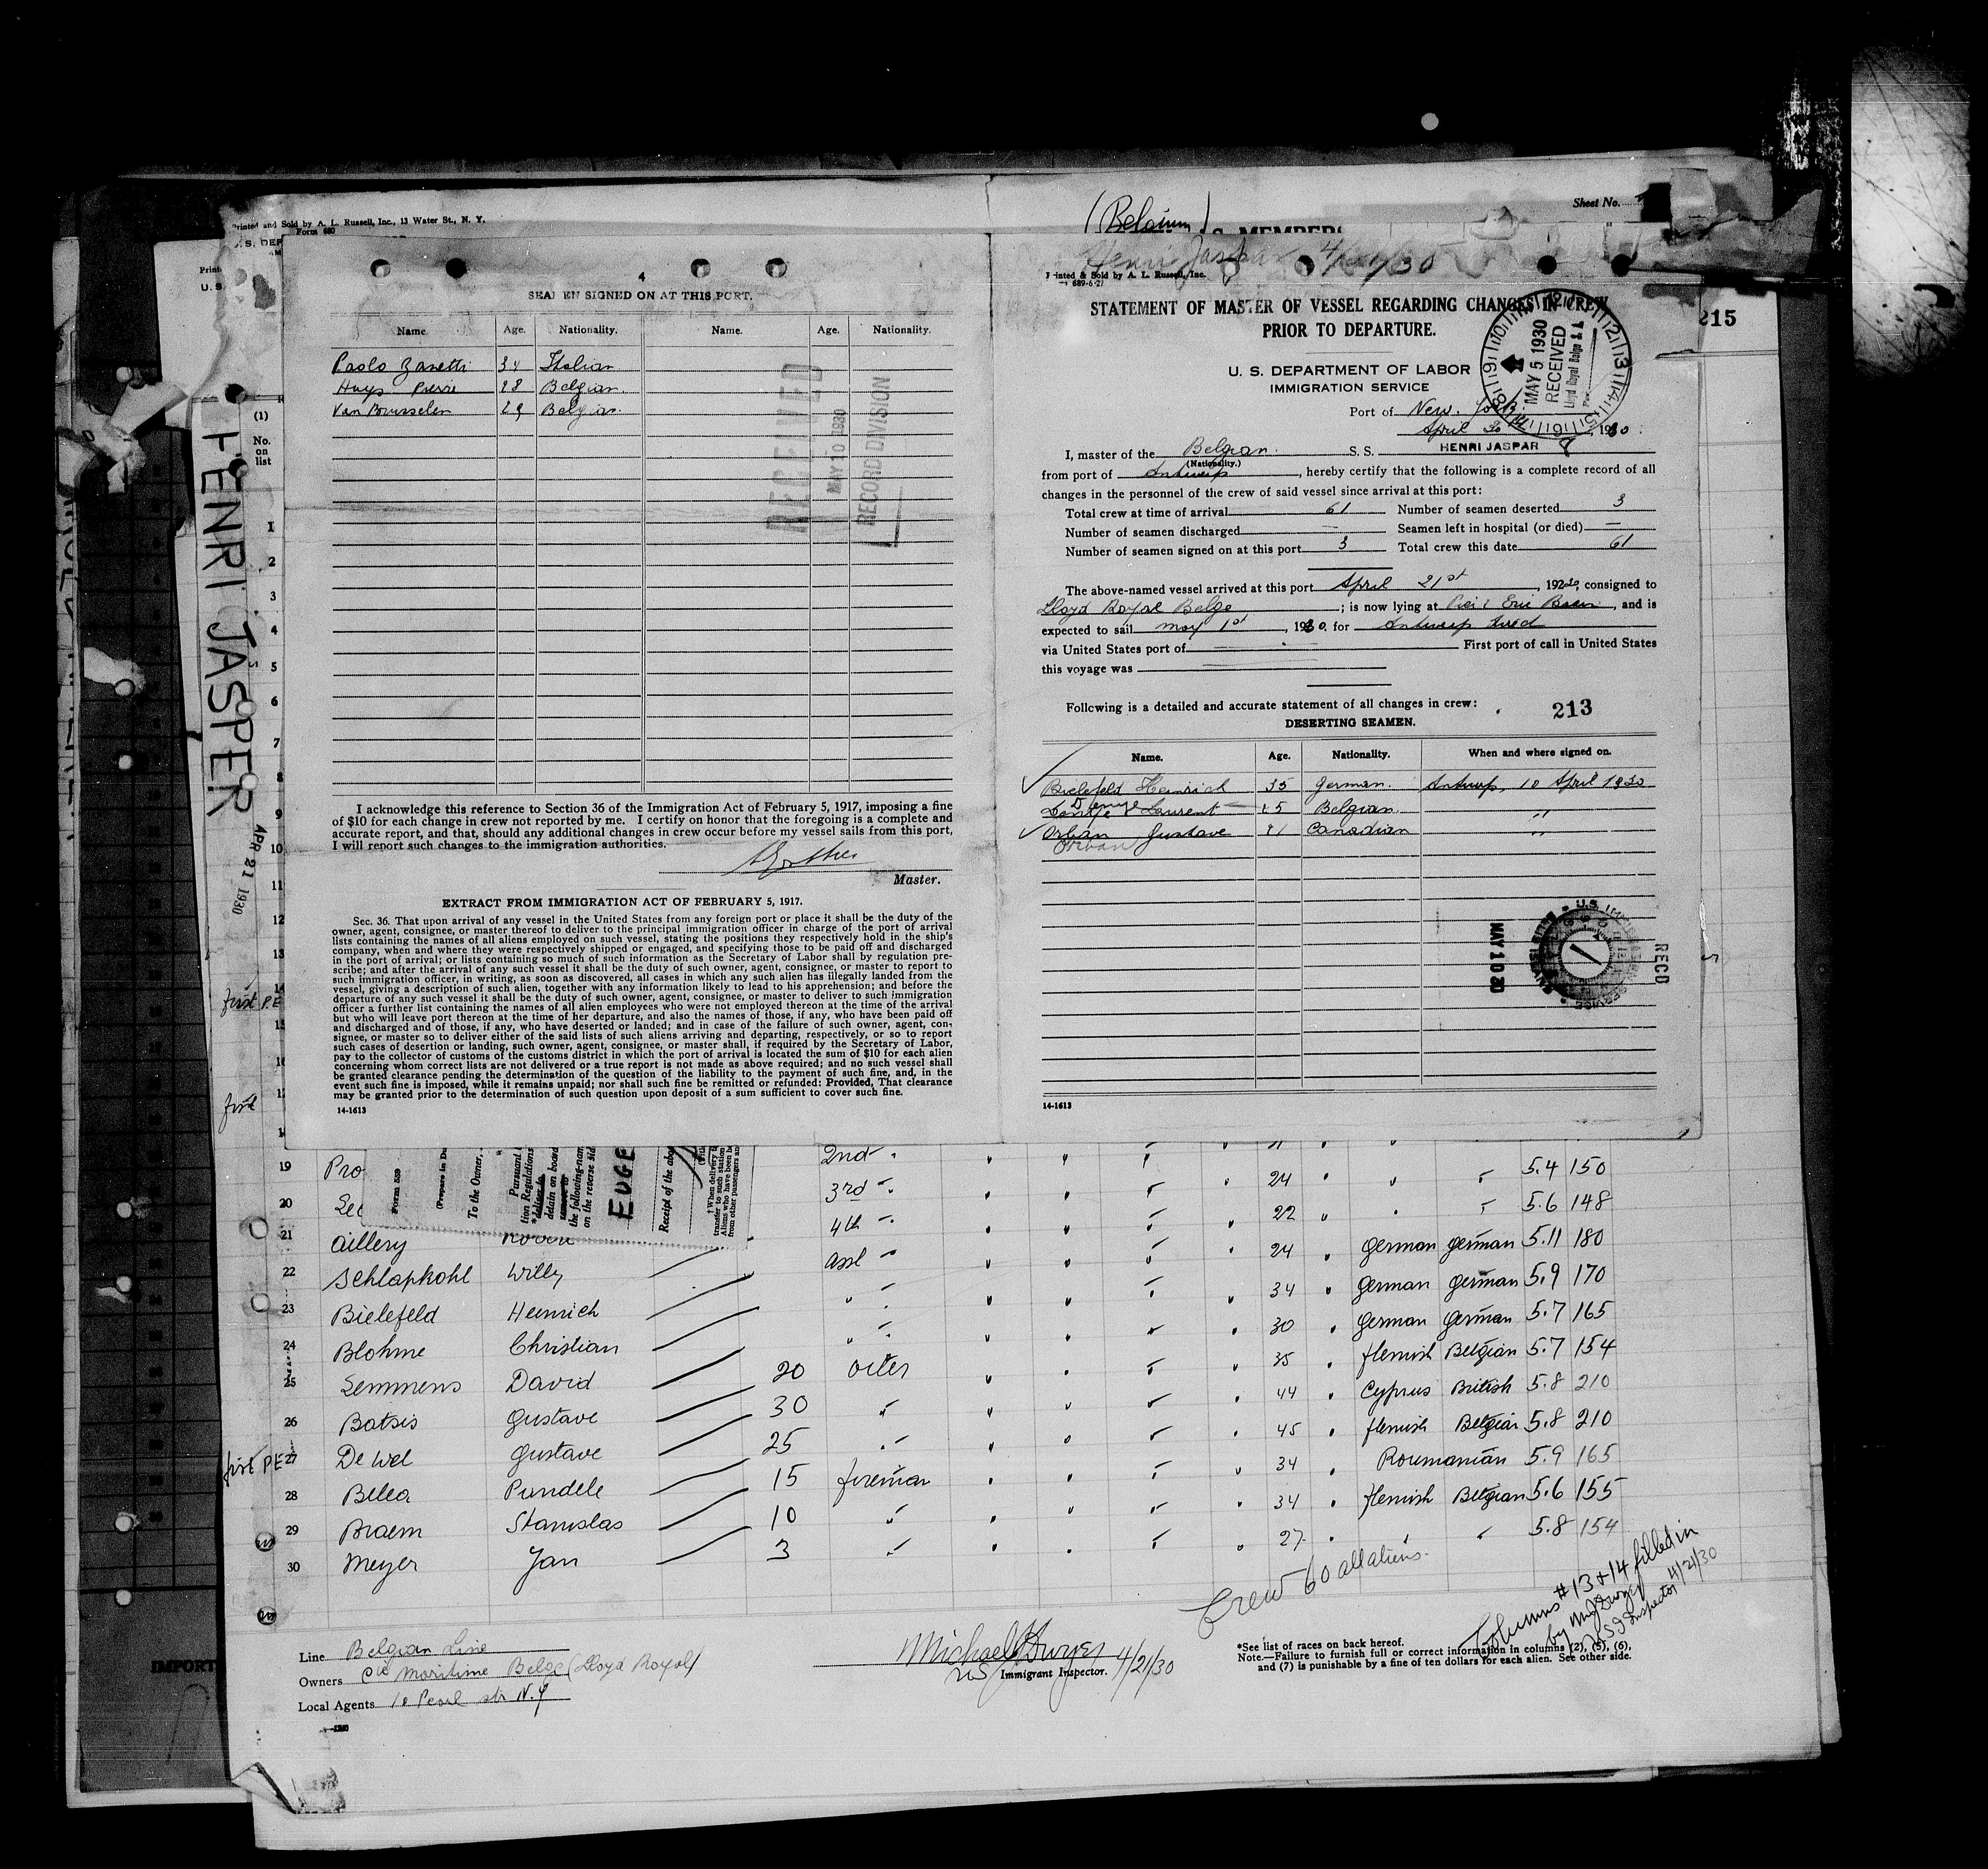 Printed and Sold by A. L. Russell, Inc., 13 Water St., N. Y.
Form 680
(Belgium)
Sheet No.
Henri Jaspar 4/21/30
215
HENRI JASPER
APR 21 1930
4
SEAMEN SIGNED ON AT THIS PORT.
Name. Age. Nationality. Name. Age. Nationality.
Paolo Zanetti 34 Italian
Huys Pierre 28 Belgian.
Van Brusselen 29 Belgian.
RECEIVED
MAY 10 1930
RECORD DIVISION
I acknowledge this reference to Section 36 of the Immigration Act of February 5, 1917, imposing a fine
of $10 for each change in crew not reported by me. I certify on honor that the foregoing is a complete and
accurate report, and that, should any additional changes in crew occur before my vessel sails from this port,
I will report such changes to the immigration authorities.
Master.
EXTRACT FROM IMMIGRATION ACT OF FEBRUARY 5, 1917.
Sec. 36. That upon arrival of any vessel in the United States from any foreign port or place it shall be the duty of the
owner, agent, consignee, or master thereof to deliver to the principal immigration officer in charge of the port of arrival
lists containing the names of all aliens employed on such vessel, stating the positions they respectively hold in the ship's
company, when and where they were respectively shipped or engaged, and specifying those to be paid off and discharged
in the port of arrival; or lists containing so much of such information as the Secretary of Labor shall by regulation pre-
scribe; and after the arrival of any such vessel it shall be the duty of such owner, agent, consignee, or master to report to
such immigration officer, in writing, as soon as discovered, all cases in which any such alien has illegally landed from the
vessel, giving a description of such alien, together with any information likely to lead to his apprehension; and before the
departure of any such vessel it shall be the duty of such owner, agent, consignee, or master to deliver to such immigration
officer a further list containing the names of all alien employees who were not employed thereon at the time of the arrival
but who will leave port thereon at the time of her departure, and also the names of those, if any, who have been paid off
and discharged and of those, if any, who have deserted or landed; and in case of the failure of such owner, agent, con-
signee, or master so to deliver either of the said lists of such aliens arriving and departing, respectively, or so to report
such cases of desertion or landing, such owner, agent, consignee, or master shall, if required by the Secretary of Labor,
pay to the collector of customs of the customs district in which the port of arrival is located the sum of $10 for each alien
concerning whom correct lists are not delivered or a true report is not made as above required; and no such vessel shall
be granted clearance pending the determination of the question of the liability to the payment of such fine, and, in the
event such fine is imposed, while it remains unpaid; nor shall such fine be remitted or refunded: Provided, That clearance
may be granted prior to the determination of such question upon deposit of a sum sufficient to cover such fine.
14-1613
Printed & Sold by A. L. Russell, Inc.
689-6-27
STATEMENT OF MASTER OF VESSEL REGARDING CHANGES IN CREW
PRIOR TO DEPARTURE.
MAY 5 1930
RECEIVED
Lloyd Royal Belge S.A.
U. S. DEPARTMENT OF LABOR
IMMIGRATION SERVICE
Port of New York
April 30, 1930
I, master of the Belgian S. S. HENRI JASPAR
(Nationality.)
from port of Antwerp, hereby certify that the following is a complete record of all
changes in the personnel of the crew of said vessel since arrival at this port:
Total crew at time of arrival 61 Number of seamen deserted 3
Number of seamen discharged — Seamen left in hospital (or died) —
Number of seamen signed on at this port 3 Total crew this date 61
The above-named vessel arrived at this port April 21st, 1930, consigned to
Lloyd Royal Belge; is now lying at Pier 1 Erie Basin, and is
expected to sail May 1st, 1930. for Antwerp
via United States port of First port of call in United States
this voyage was
Following is a detailed and accurate statement of all changes in crew:
213
DESERTING SEAMEN.
Name. Age. Nationality. When and where signed on.
Bielefeld Heinrich 35 German. Antwerp, 10 April 1930
Laurent 25 Belgian. "
Orban Gustave 21 Canadian "
Orban
MAY 10 30
RECD
14-1613
19 2nd 5.4 150
20 3rd 24 5.6 148
21 aillery 4th 22 german german 5.11 180
22 Schlapkohl Willy asst 24 german german 5.9 170
23 Bielefeld Heinrich 34 german german 5.7 165
24 Blohme Christian 30 flemish Belgian 5.7 154
25 Lemmens David 20 oiler 35 Cyprus British 5.8 210
26 Batsis Gustave 30 44 flemish Belgian 5.8 210
27 De Wel Gustave 25 45 Roumanian 5.9 165
28 Belea Pandele 15 fireman 34 flemish Belgian 5.6 155
29 Braem Stanislas 10 34 5.8 154
30 Meyer Jan 3 27
first P.E
Form 539
To the Owner,
EUGE
Receipt of the abo
Crew 60 all aliens.
Columns #13 + 14 filled in
by M J Dwyer
US I Inspector 4/21/30
Line Belgian Line
Owners Cie Maritime Belge (Lloyd Royal)
Local Agents 10 Pearl str N.Y
Michael J Dwyer
US Immigrant Inspector. 4/21/30
*See list of races on back hereof.
Note.—Failure to furnish full or correct information in columns (2), (5), (6),
and (7) is punishable by a fine of ten dollars for each alien. See other side.
IMPORT